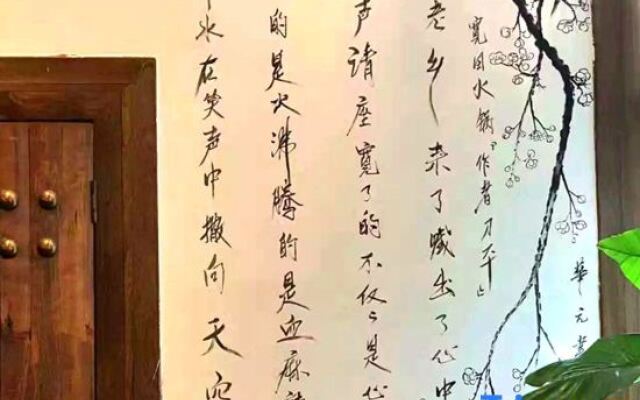 作者刁平
老乡来了喊出了心中
声请座寬了的不仅々是心
的是火沸腾的是血麻
水在笑声中撒向天空
華元